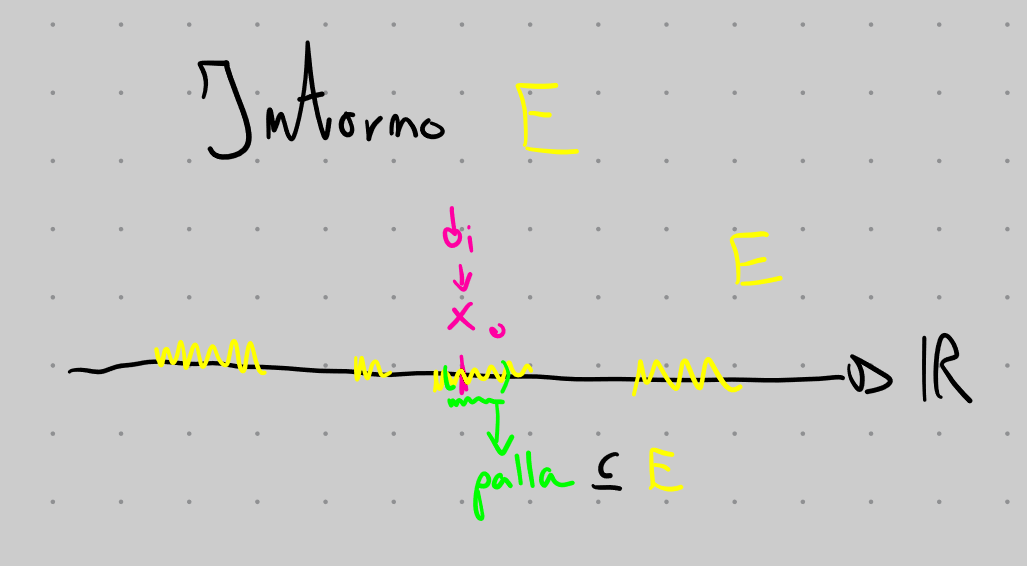 Intorno E
di
E
x₀
ℝ
palla ⊆ E